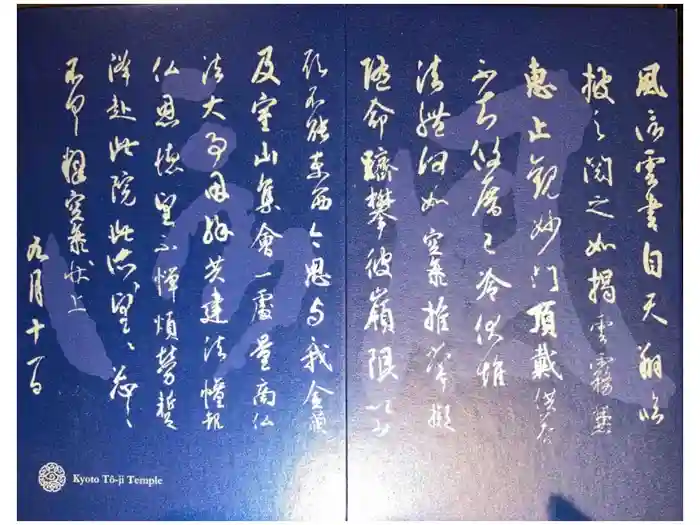 風信雲書自天翔臨
披之閲之如揭雲霧兼
恵止観妙門頂戴供養
不知攸厝已冷伏惟
法體何如空海推常擬
随命躋攀彼嶺限以少
願不能東西今思与我金蘭
及室山集會一處量商仏
法大事因縁共建法幢報
仏恩徳望不憚煩勞蹔
降赴此院此所望々忩々
不具釋空海状上
九月十一日
Kyoto Tô-ji Temple